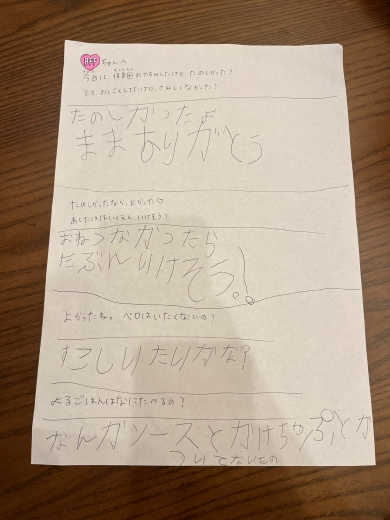 BFFちゃんへ
今日は保育園おやすみしたけど、たのしかった?
ママおしごとしてたけど、さみしくなかった?
たのしかったよ
ままありがとう
たのしかったならよかった♡
あしたはほいくえん、いけそう?
おねつなかったら
たぶんいけそう!
よかったね。ベロはいたくないの?
すこしいたいかな?
よるごはんはなにたべるの?
なんかソースとかけちゃぷとか
ついてないもの